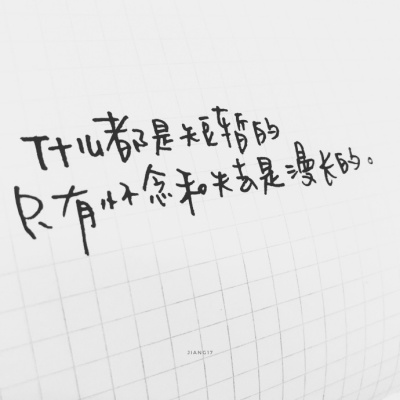 什么都是短暂的
只有怀念和失去是漫长的。
JIANGIT